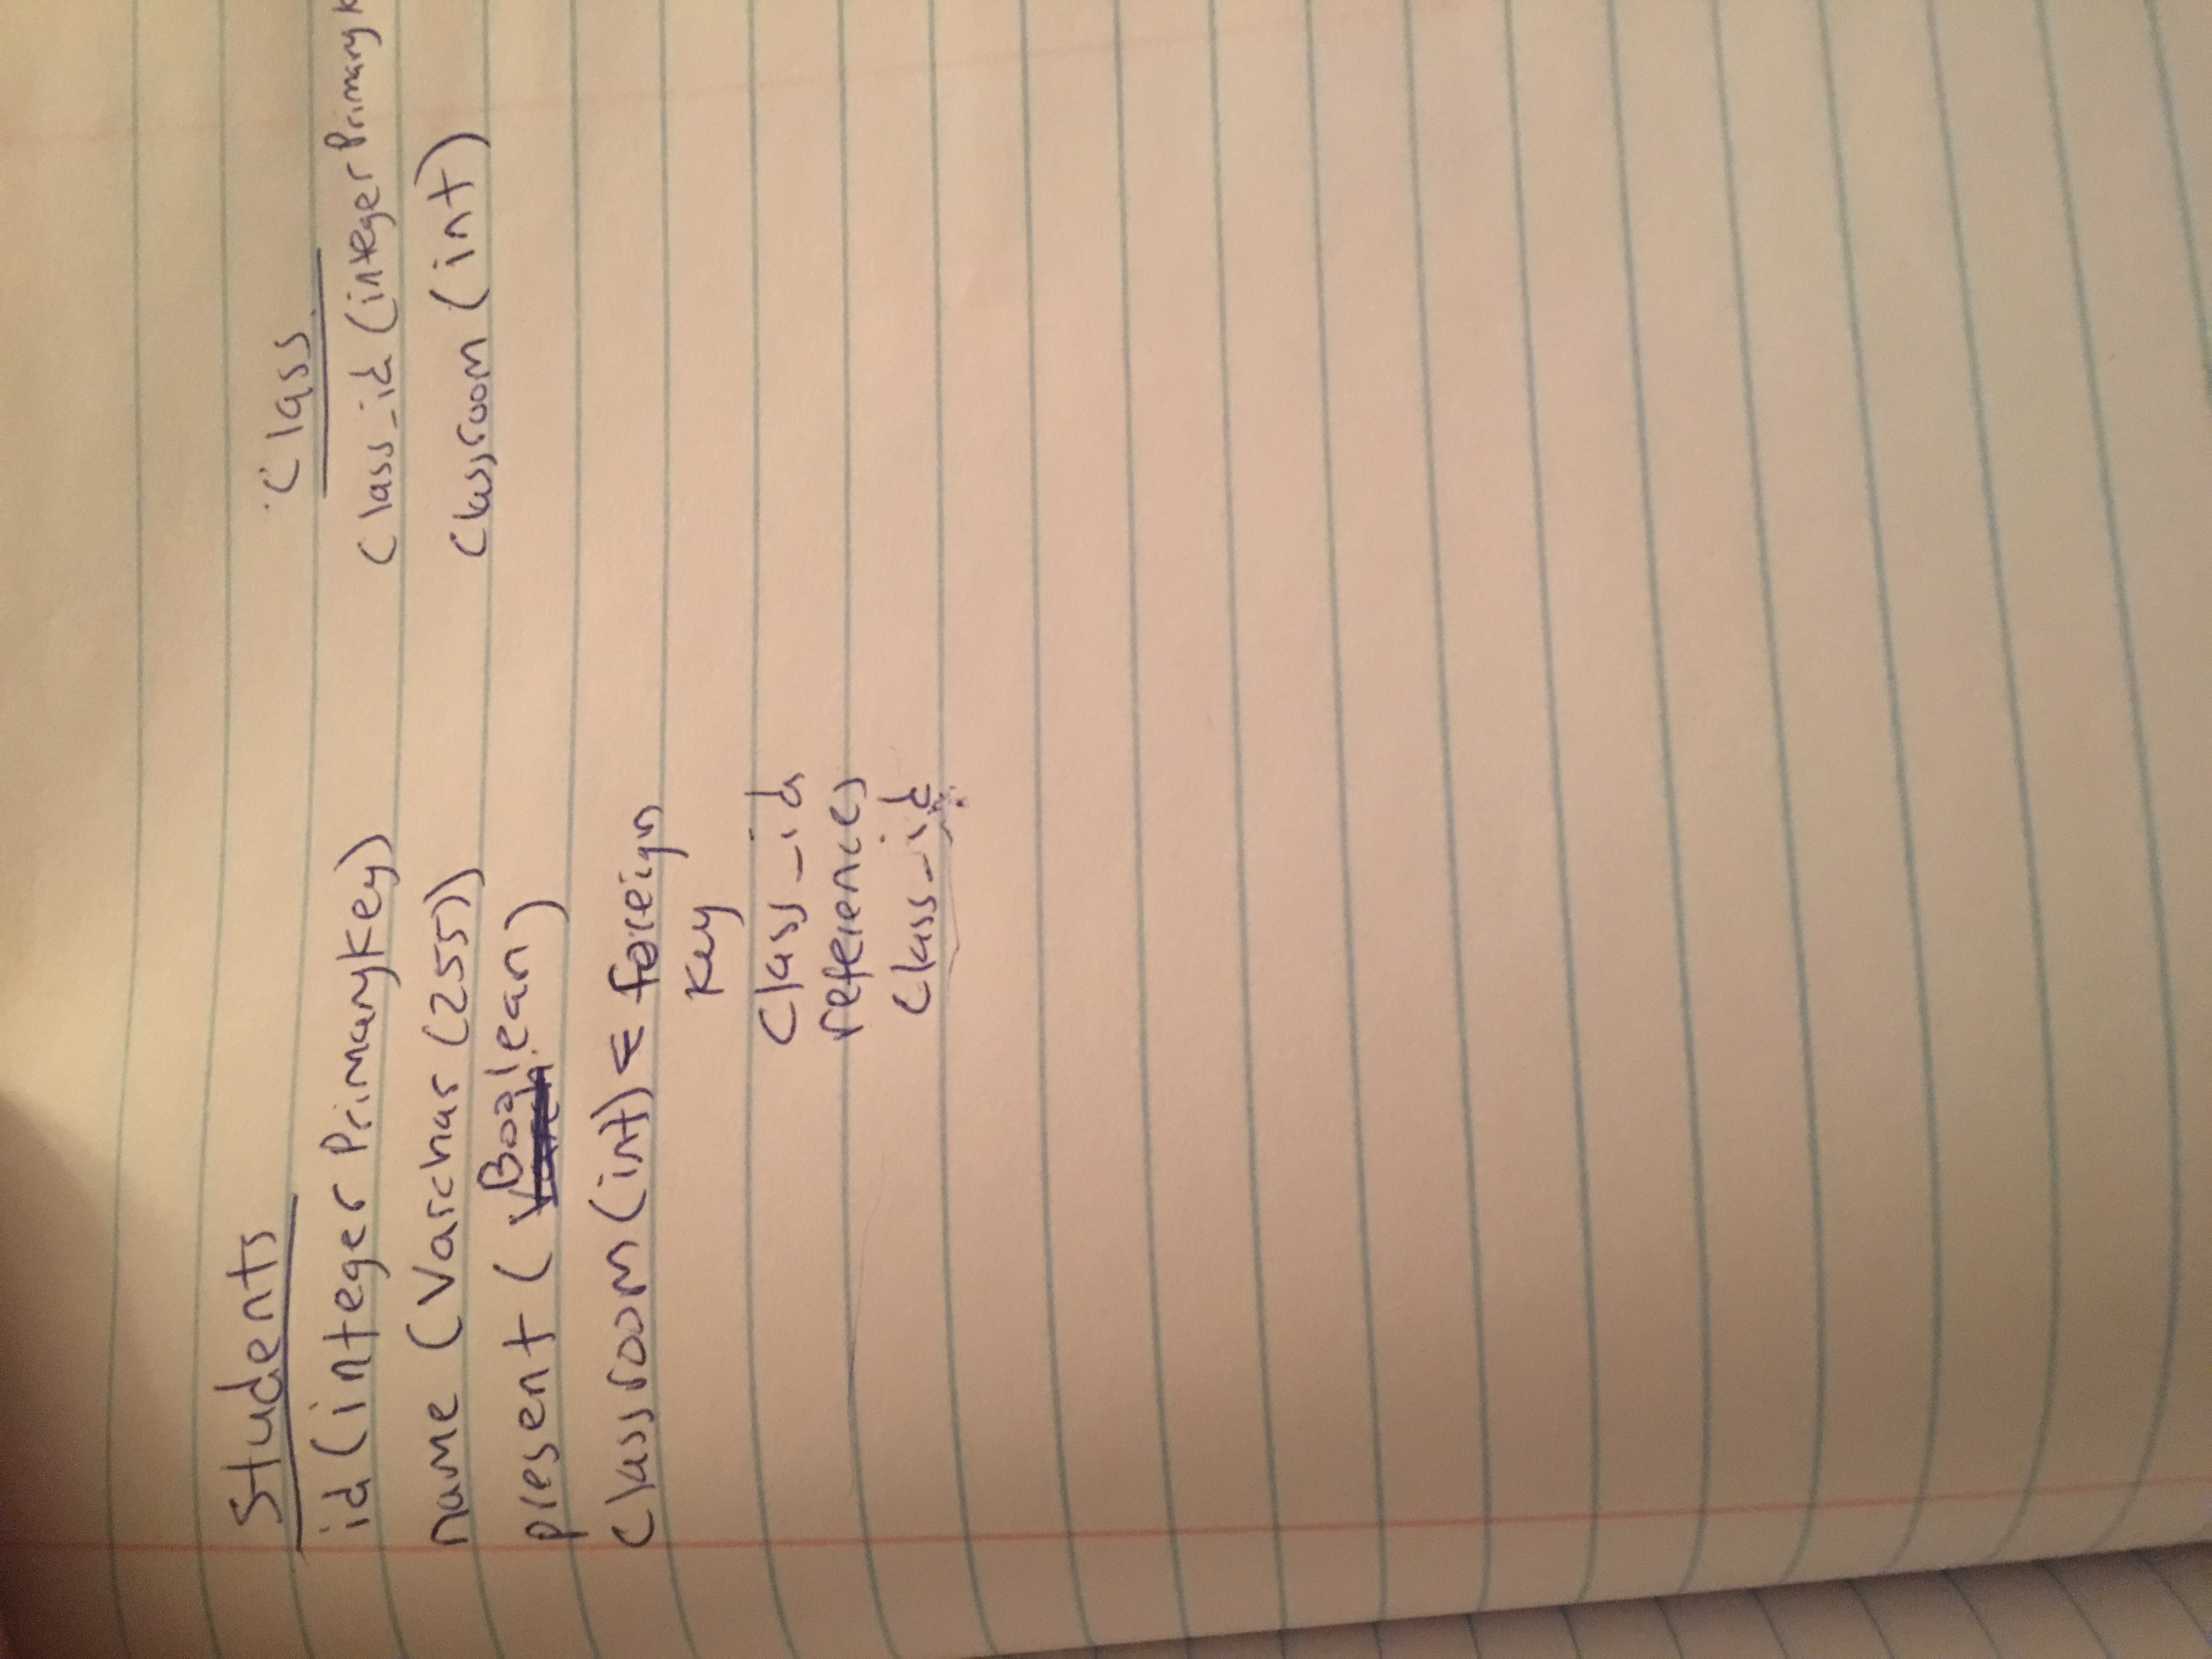 Students
id (integer Primary Key)
name (Varchar (255))
present ( Boolean)
Classroom (int) ← foreign
Key
Class_id
references
Class_id
Class
Class_id (integer Primary K
Classroom (int)